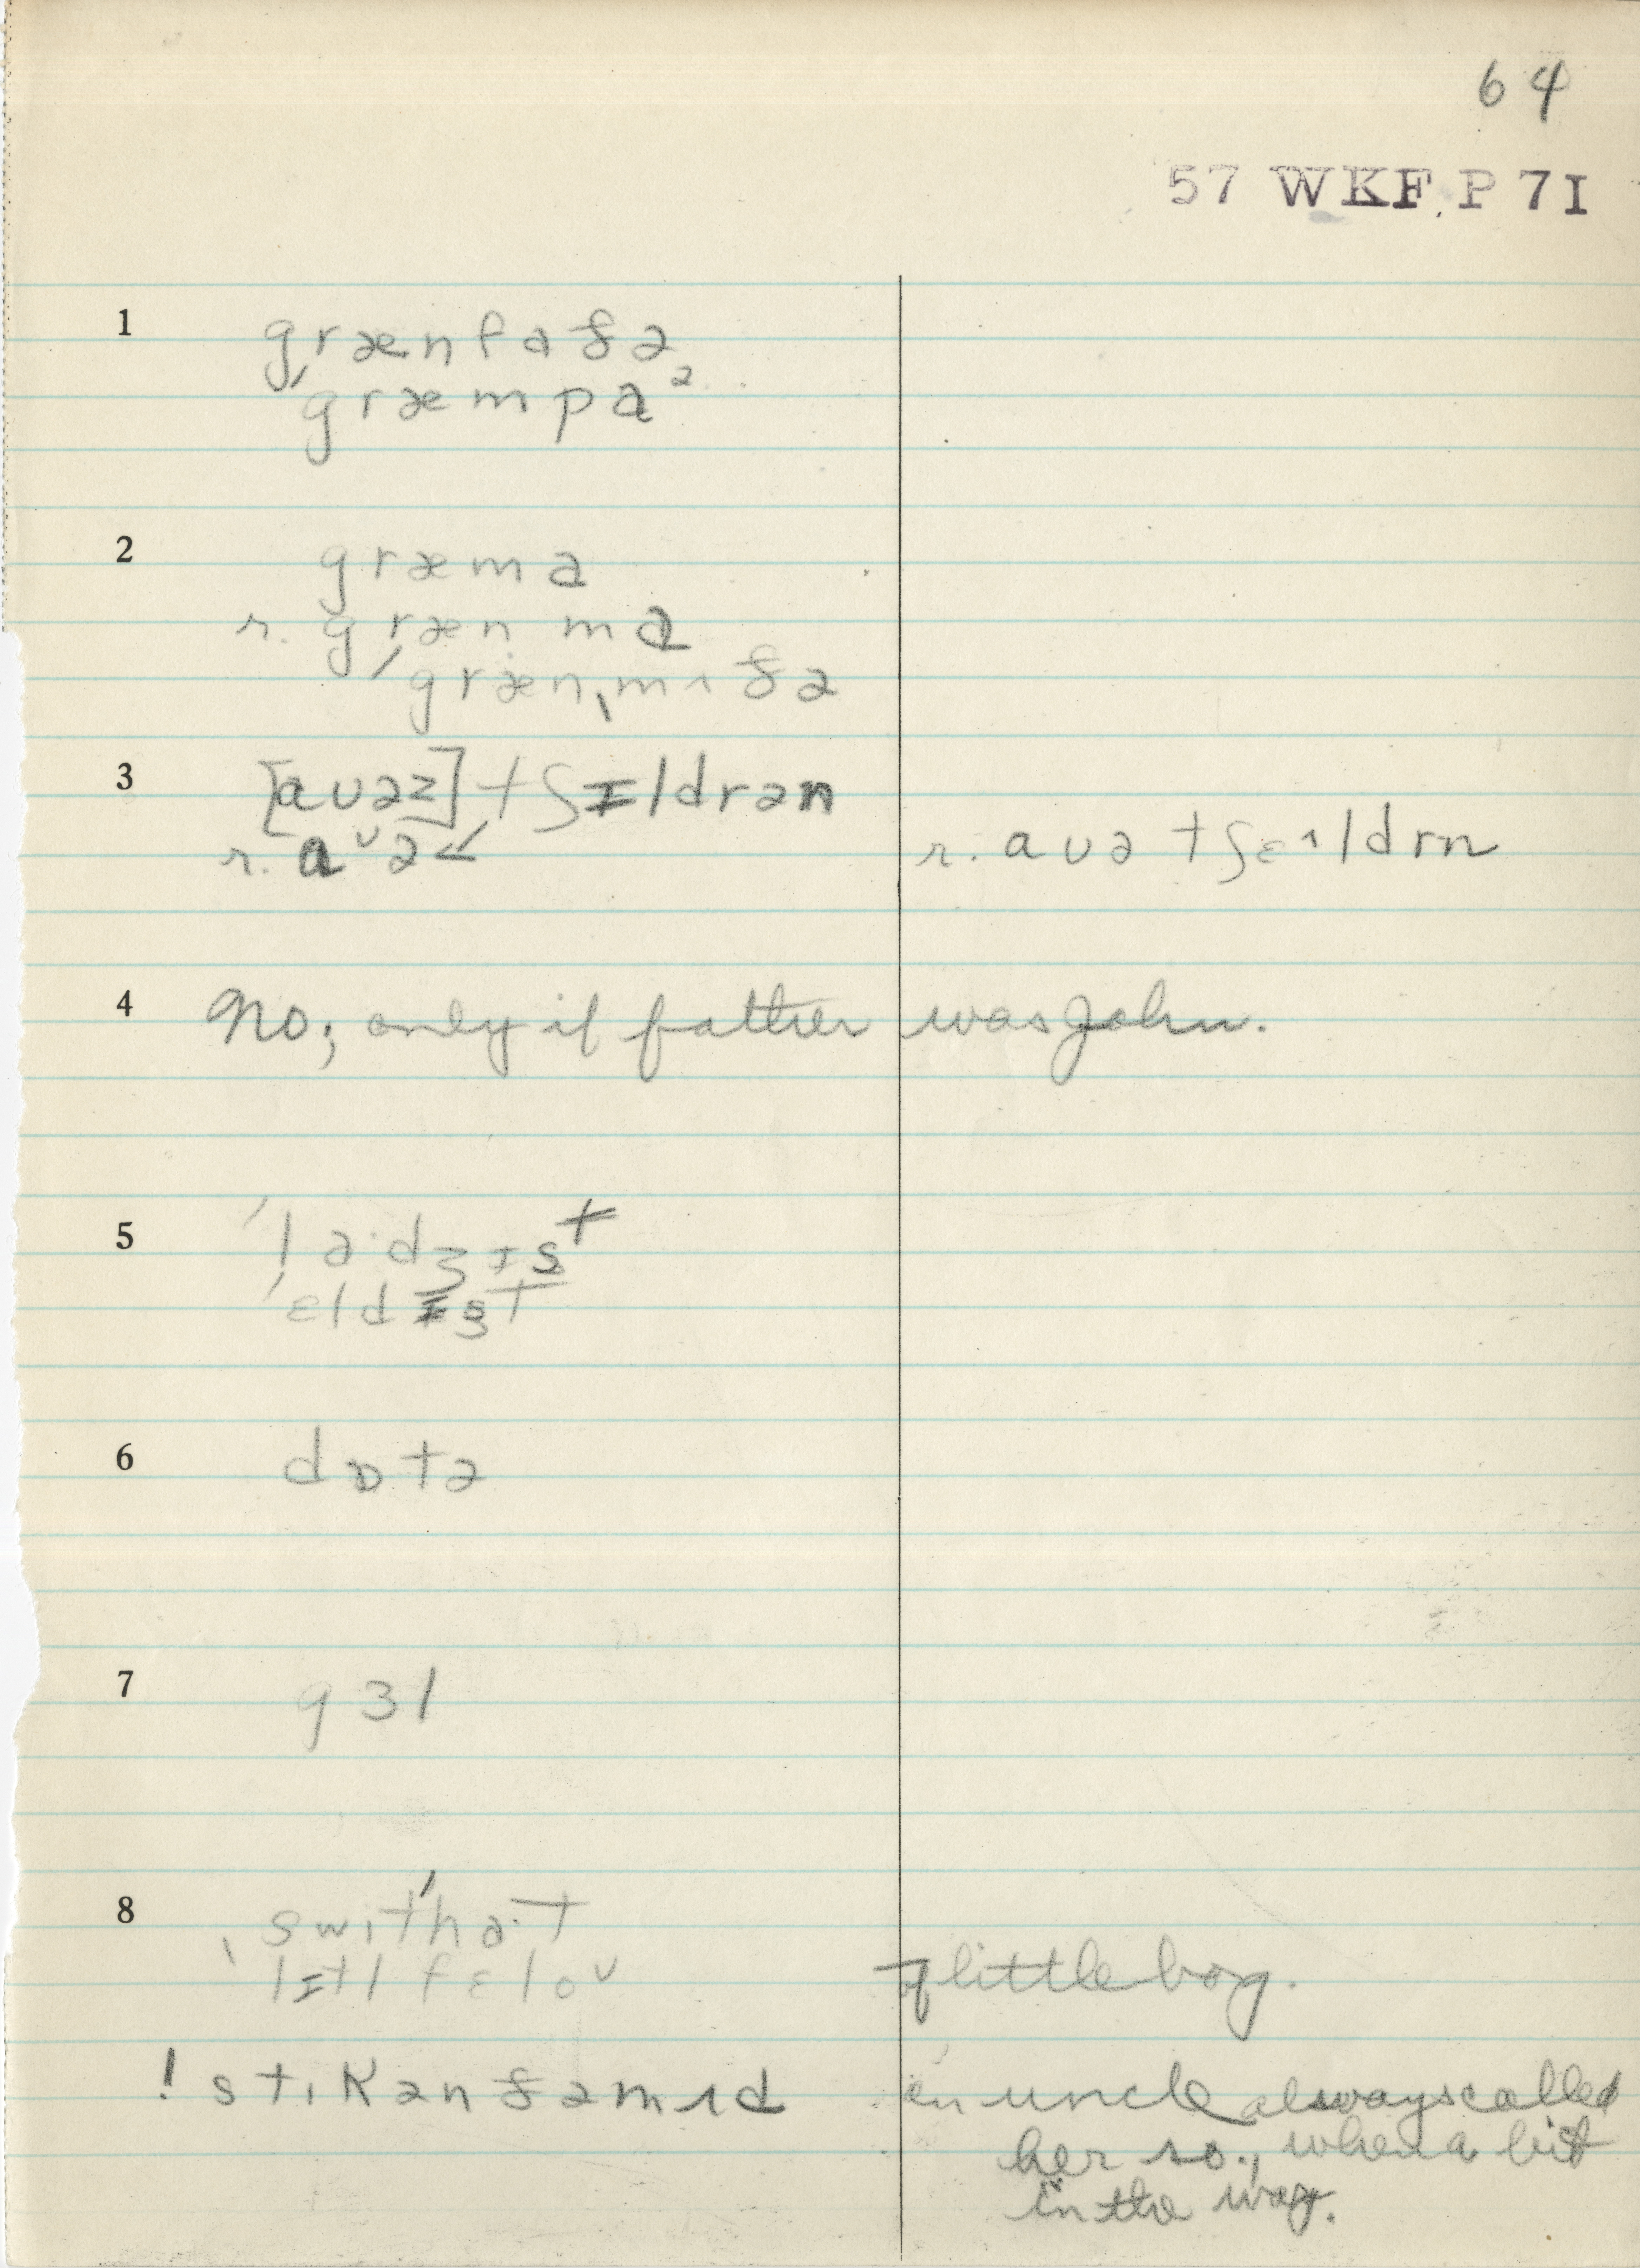 64
57 WKF P 71
1 grænfaðə
ˈgræmpaᵊ
2 græma
r. græn ma
ˈgrænˌmʌðə
3 [aʊəz] tʃɪldrən
r. aᵛə < r. aʊə tʃɛ^ldrn
4 No; only if father was John.
5 ˈladʒɪst
ˈɛldɪst
6 dɒtə
7 gɜl
8 swit'hɑ·t
lɪtl fɛloᵛ of little boy.
! stɪk ən ðə mʌd an uncle always called
her so, when a bit
in the way.